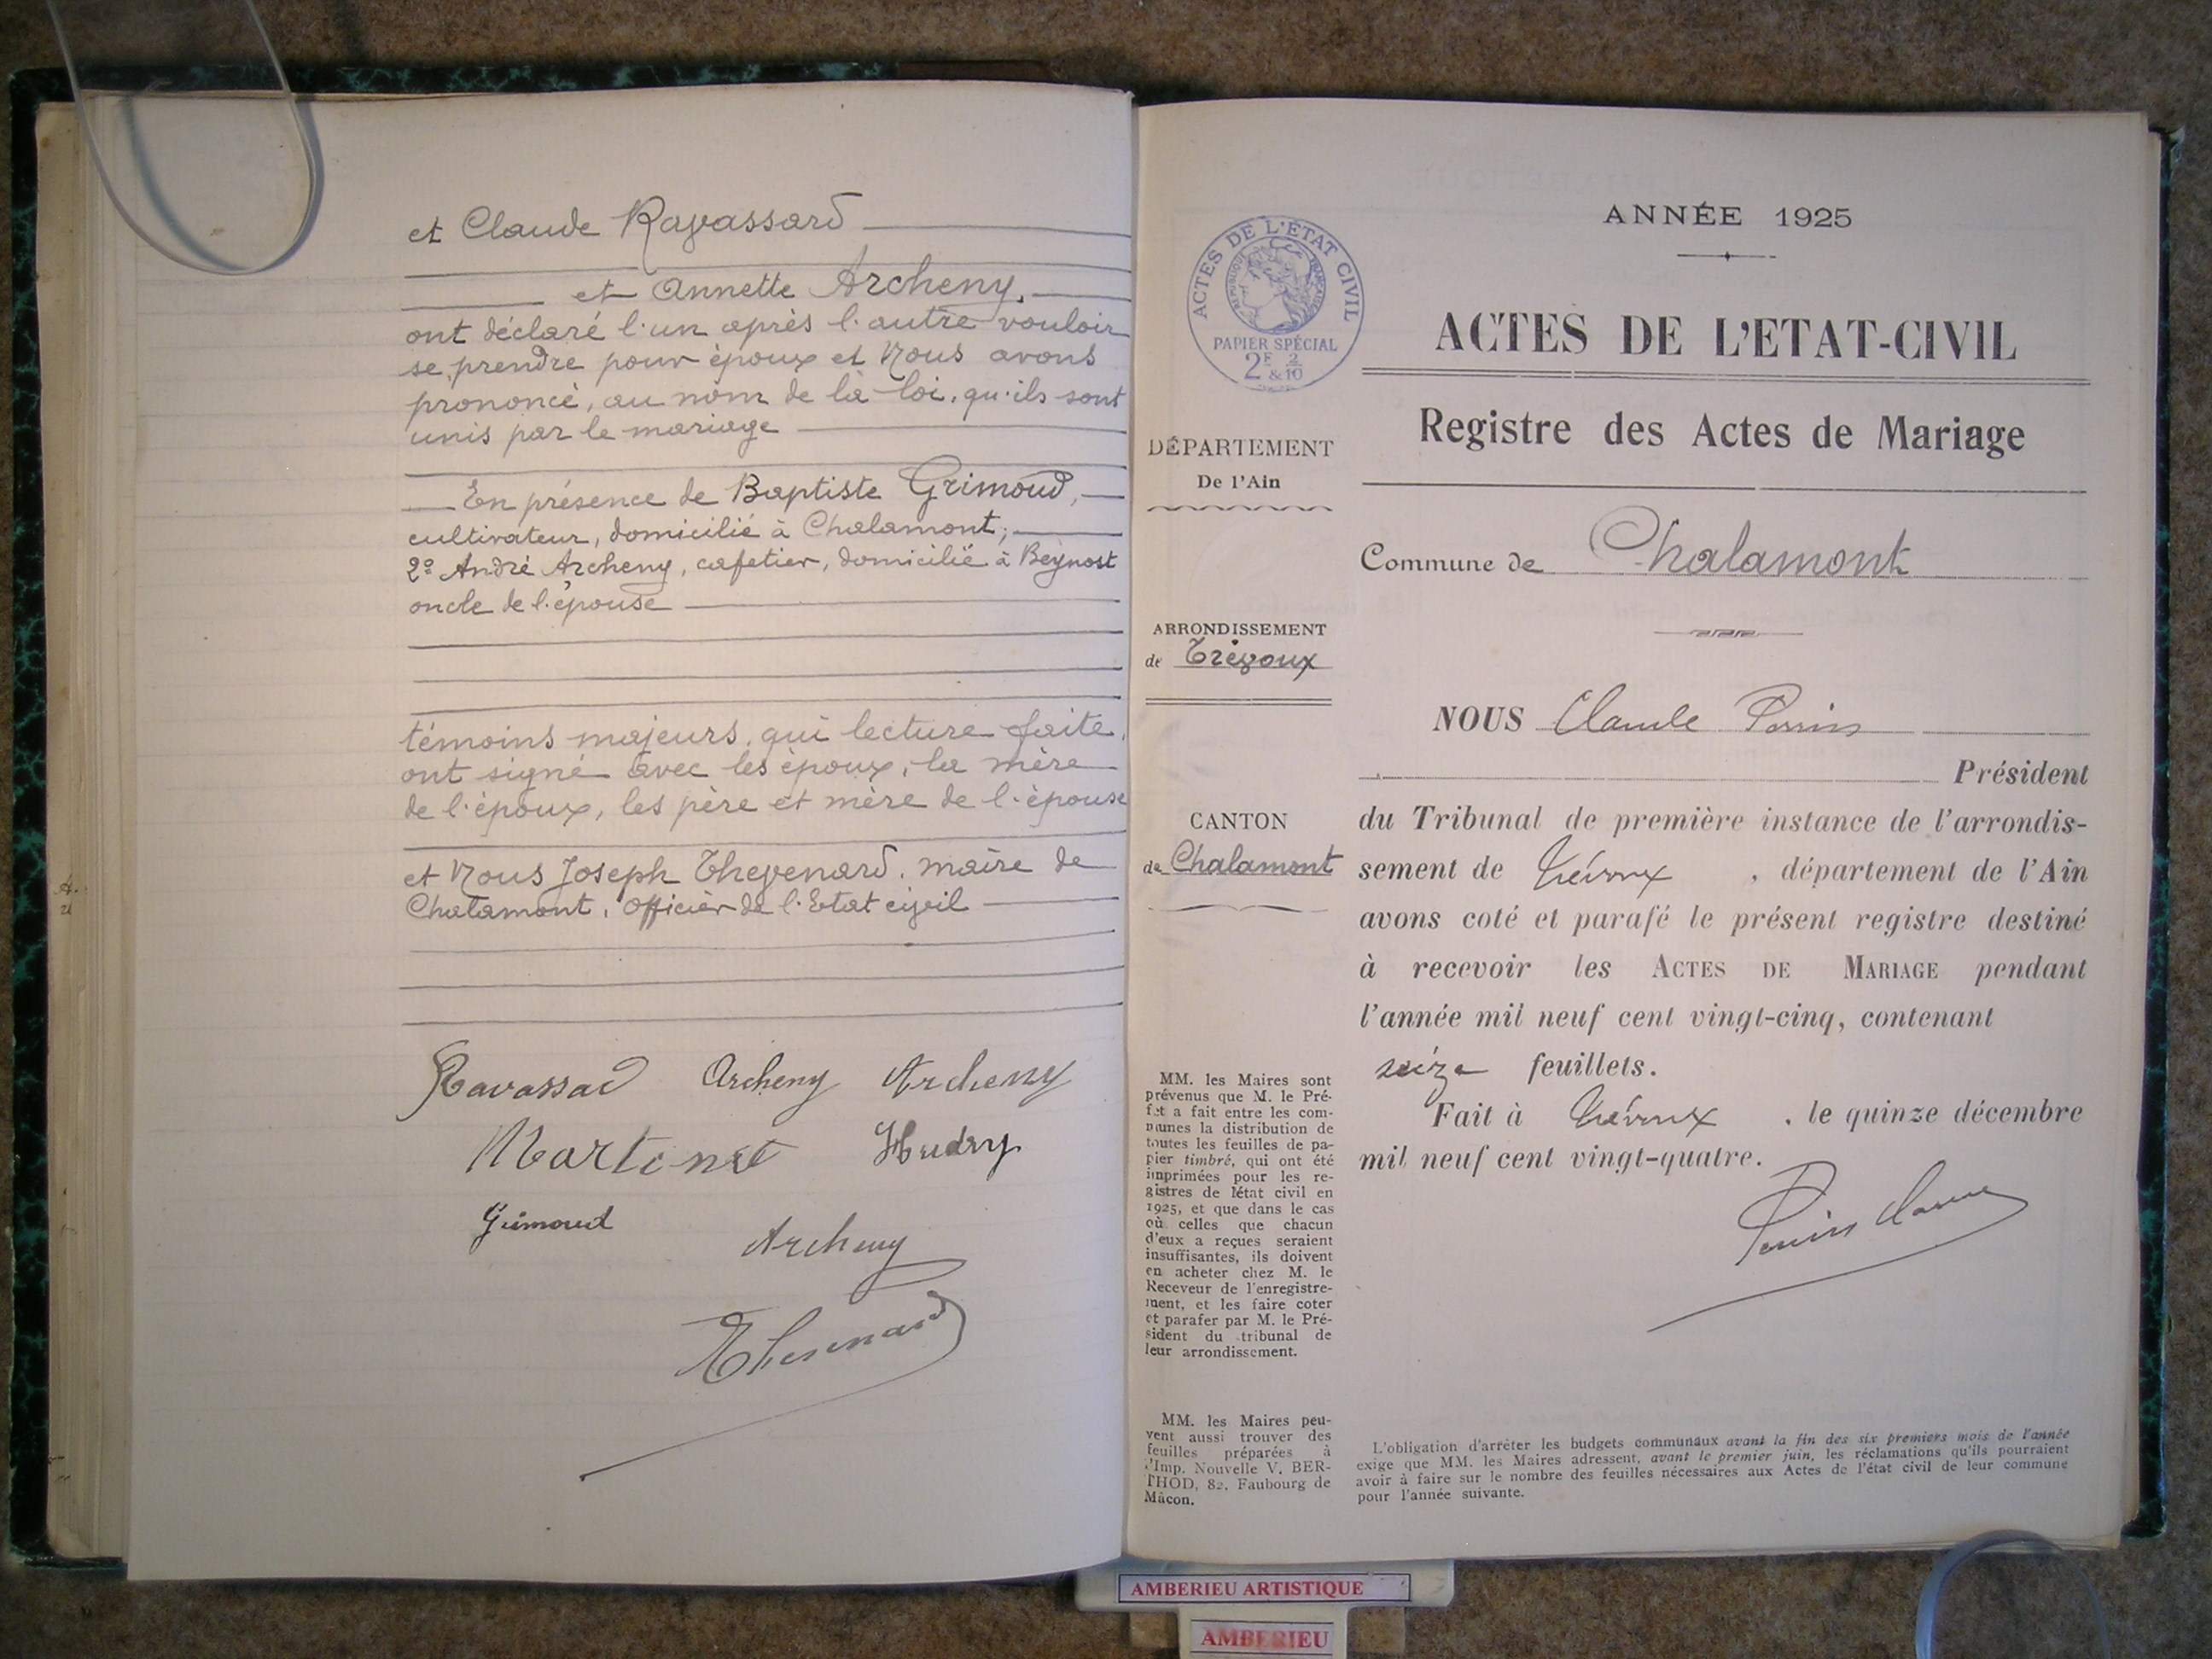 et Claude Ravassard
et Annette Archeny,
ont déclaré l'un après l'autre vouloir
se prendre pour époux et Nous avons
prononcé, au nom de la loi, qu'ils sont
unis par le mariage
En présence de Baptiste Grimoud,
cultivateur, domicilié à Chalamont;
2º André Archeny, cafetier, domicilié à Beynost
oncle de l'épouse
témoins majeurs, qui lecture faite,
ont signé avec les époux, la mère
de l'époux, les père et mère de l'épouse
et Nous Joseph Thevenard, maire de
Chalamont, Officier de l'Etat civil
Ravassard Archeny Archeny
Hudry
Grimoud
Archeny
Thevenard
ANNÉE 1925
ACTES DE L'ÉTAT CIVIL
RÉPUBLIQUE FRANÇAISE
PAPIER SPÉCIAL
2F 2/10
&
ACTES DE L'ETAT-CIVIL
Registre des Actes de Mariage
DÉPARTEMENT
De l'Ain
Commune de Chalamont
ARRONDISSEMENT
de Trévoux
CANTON
de Chalamont
NOUS Claude Perrin
Président
du Tribunal de première instance de l'arrondis-
sement de Trévoux, département de l'Ain
avons coté et parafé le présent registre destiné
à recevoir les ACTES DE MARIAGE pendant
l'année mil neuf cent vingt-cinq, contenant
seize feuillets.
Fait à Trévoux, le quinze décembre
mil neuf cent vingt-quatre.
Perrin Claude
MM. les Maires sont
prévenus que M. le Pré-
fet a fait entre les com-
munes la distribution de
toutes les feuilles de pa-
pier timbré, qui ont été
imprimées pour les re-
gistres de l'état civil en
1925, et que dans le cas
où celles que chacun
d'eux a reçues seraient
insuffisantes, ils doivent
en acheter chez M. le
Receveur de l'enregistre-
ment, et les faire coter
et parafer par M. le Pré-
sident du tribunal de
leur arrondissement.
MM. les Maires peu-
vent aussi trouver des
feuilles préparées à
l'Imp. Nouvelle V. BER-
THOD, 82, Faubourg de
Mâcon.
L'obligation d'arrêter les budgets communaux avant la fin des six premiers mois de l'année
exige que MM. les Maires adressent, avant le premier juin, les réclamations qu'ils pourraient
avoir à faire sur le nombre des feuilles nécessaires aux Actes de l'état civil de leur commune
pour l'année suivante.
AMBERIEU ARTISTIQUE
AMBERIEU